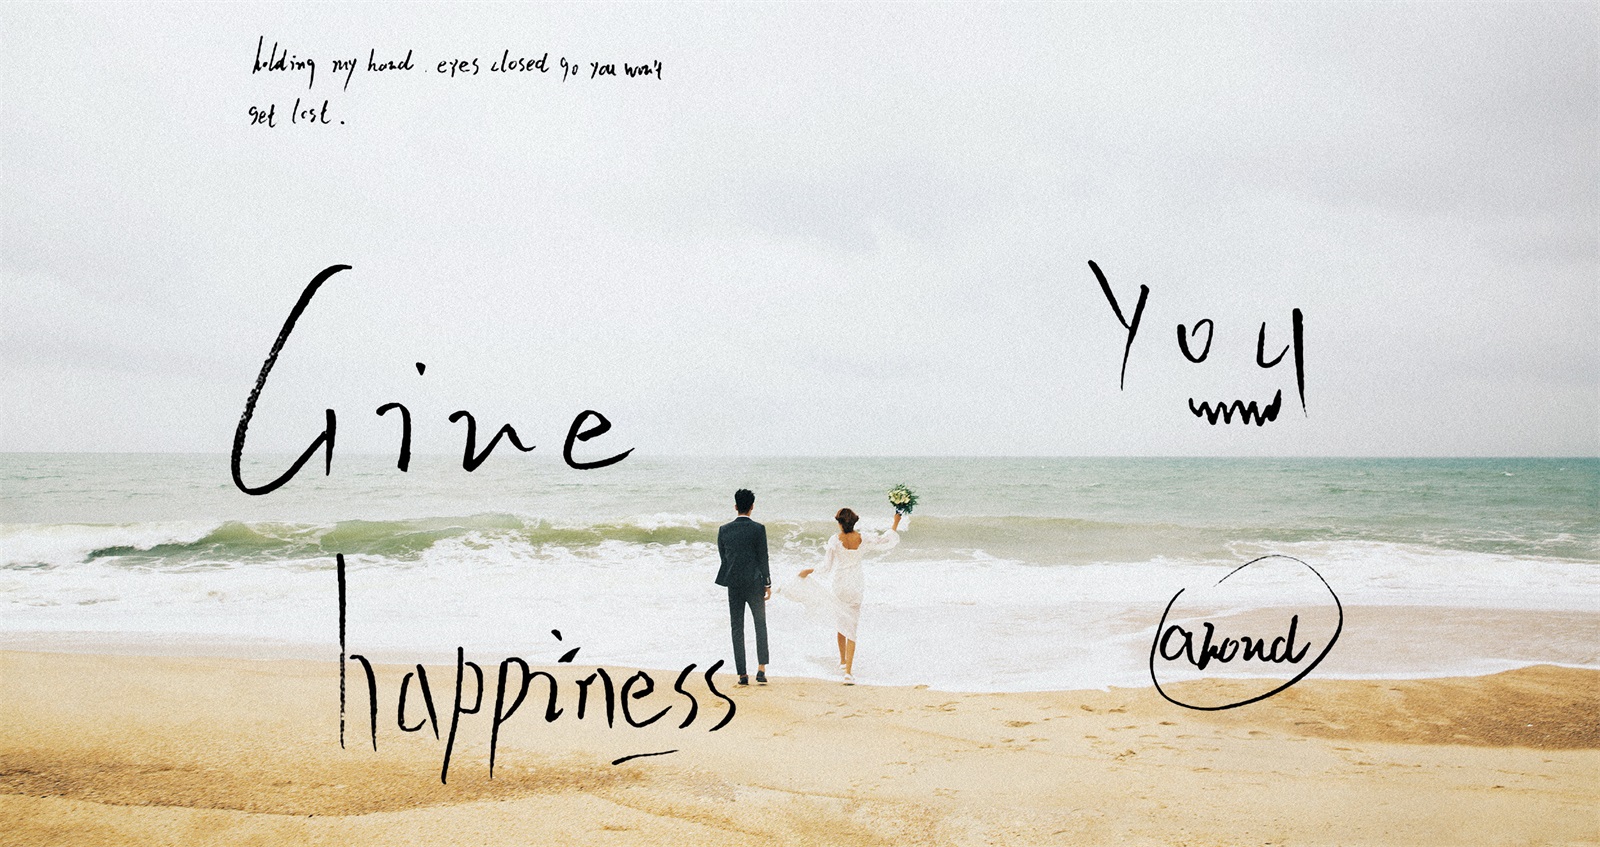 holding my hand. eyes closed go you won't
get lost.
Give
You
happiness
arond